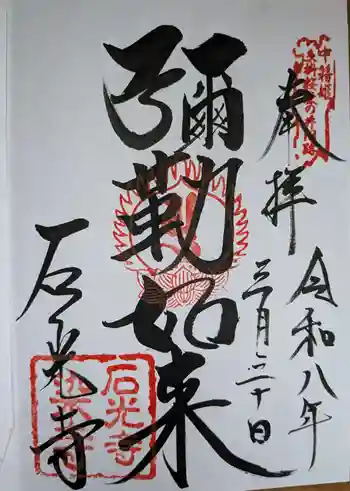 奉拝
令和八年
三月二十日
彌勒如来
石光寺
中将姫
石光寺